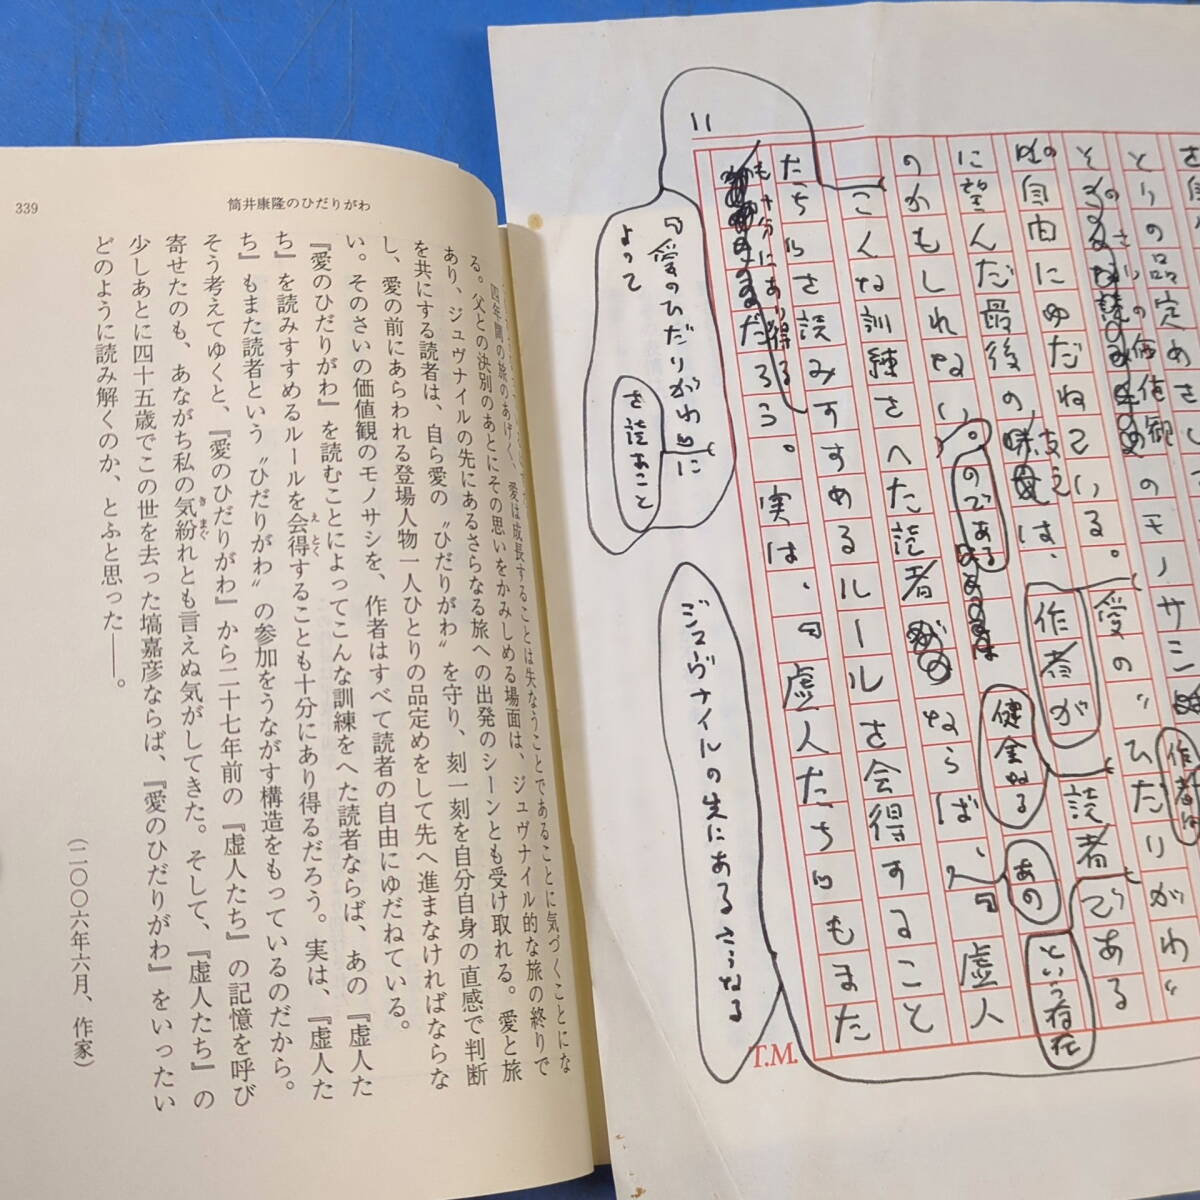 339
筒井康隆のひだりがわ
四年間の旅のあげく、愛は成長することは失なうことであることに気づくことにな
る。父との決別のあとにその思いをかみしめる場面は、ジュヴナイル的な旅の終りで
あり、ジュヴナイルの先にあるさらなる旅への出発のシーンとも受け取れる。愛と旅
を共にする読者は、自ら愛の〝ひだりがわ〟を守り、刻一刻を自分自身の直感で判断
し、愛の前にあらわれる登場人物一人ひとりの品定めをして先へ進まなければならな
い。そのさいの価値観のモノサシを、作者はすべて読者の自由にゆだねている。
『愛のひだりがわ』を読むことによってこんな訓練をへた読者ならば、あの『虚人た
ち』を読みすすめるルールを会得することも十分にあり得るだろう。実は、『虚人た
えとく
ち』もまた読者という〝ひだりがわ〟の参加をうながす構造をもっているのだから。
そう考えてゆくと、『愛のひだりがわ』から二十七年前の『虚人たち』の記憶を呼び
寄せたのも、あながち私の気紛れとも言えぬ気がしてきた。そして、『虚人たち』の
きまぐ
少しあとに四十五歳でこの世を去った塙嘉彦ならば、『愛のひだりがわ』をいったい
どのように読み解くのか、とふと思った――。
（二〇〇六年六月、作家）
11
とりの品定めをし
そのさいの価値観のモノサシ
作者は
の自由にゆだねている。愛の〝ひだりがわ〟
作者が
読者である
という存在
に望んだ最後の
支え
は、
のかもしれない。
のである
健全なる
こんな訓練をへた読者ならば、
あの
『虚人
たち』を読みすすめるルールを会得すること
も十分にあり得る
だろう。実は、『虚人たち』もまた
『愛のひだりがわ』に
よって
を読むこと
ジュヴナイルの先にあるさらなる
T.M.